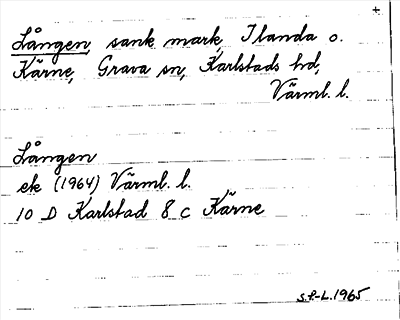 +
Lången, sank mark, Ilanda o.
Kärne, Grava sn, Karlstads hd,
Värml. l.
Lången
ek (1964) Värml. l.
10 D Karlstad 8 c Kärne
S.F-L. 1965